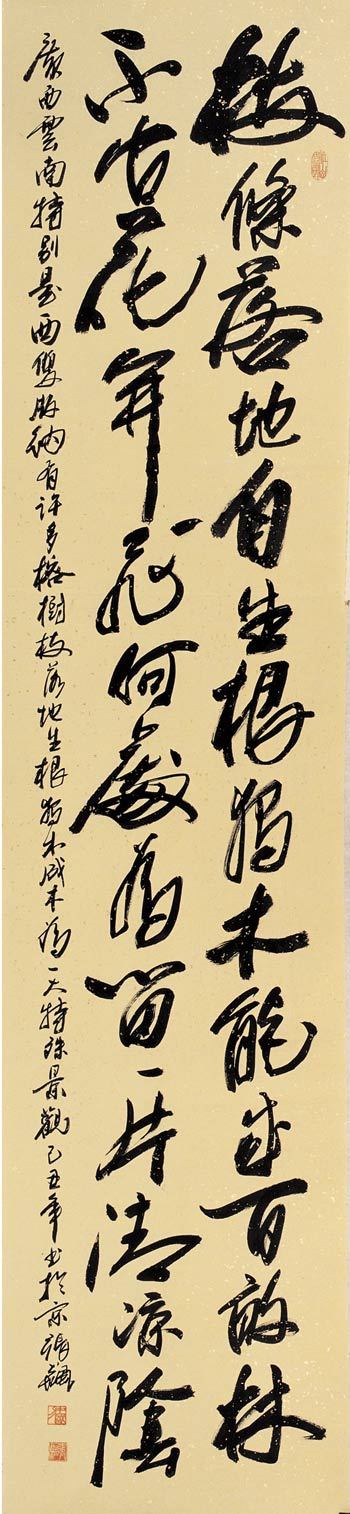 枝條落地自生根獨木能成百畝林
不花何處為留一片清凉陰
廣西雲南特别是西雙版納有許多榕樹枝落地生根獨木成林為一大特殊景觀己丑年書於京張